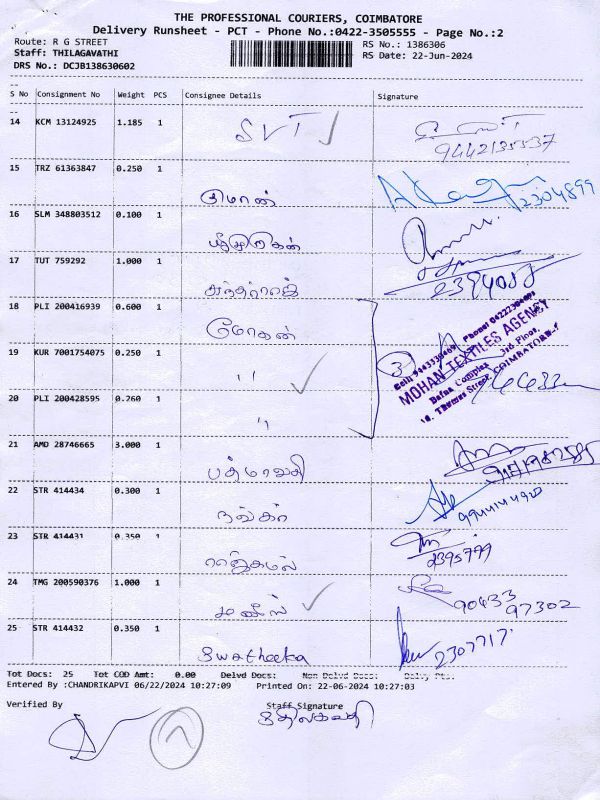 THE PROFESSIONAL COURIERS, COIMBATORE
Delivery Runsheet - PCT - Phone No.:0422-3505555 - Page No.:2
Route: R G STREET
Staff: THILAGAVATHI
DRS No.: DCJB138630602
RS No.: 1386306
RS Date: 22-Jun-2024
S No Consignment No Weight PCS Consignee Details Signature
14 KCM 13124925 1.185 1 SVT
9442135537
15 TRZ 61363847 0.250 1 மோகன் 2304899
16 SLM 348803512 0.100 1
17 TUT 759292 1.000 1
18 PLI 200416939 0.600 1 மோகன்
19 KUR 7001754075 0.250 1 ,,
20 PLI 200428595 0.260 1 ,,
MOHAN TEXTILES AGENCY
Bafna Complex, 3rd Floor,
Thomas Street, COIMBATORE
21 AMD 28746665 3.000 1
22 STR 414434 0.300 1
23 STR 414431 0.350 1 ராஜ்கமல் 2395799
24 TMG 200590376 1.000 1 90433
97302
25 STR 414432 0.350 1 Swatheeka 2307717
Tot Docs: 25 Tot COD Amt: 0.00 Delvd Docs: Non Delvd Docs: Delvy Pts:
Entered By :CHANDRIKAPVI 06/22/2024 10:27:09 Printed On: 22-06-2024 10:27:03
Verified By Staff Signature